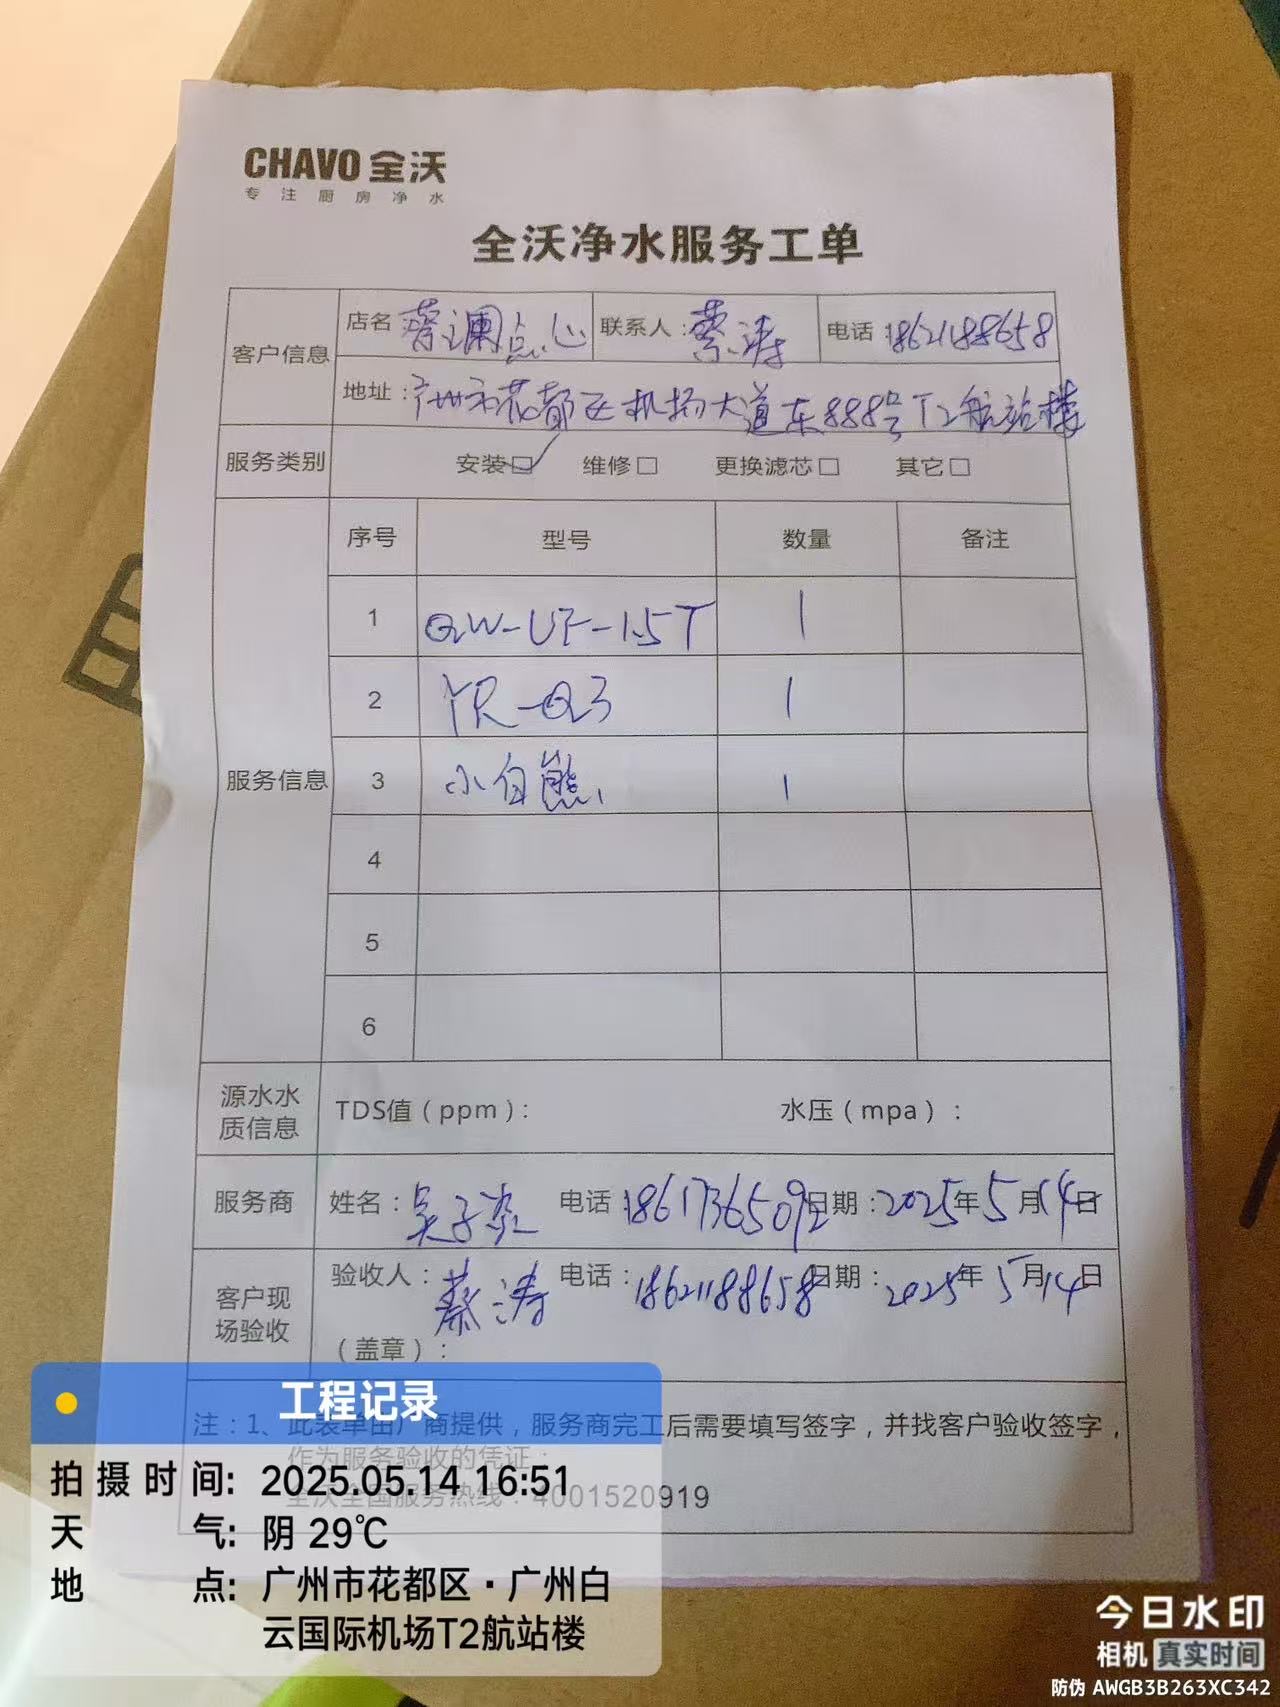 CHAVO 全沃
专注厨房净水
全沃净水服务工单
客户信息 店名 蔡澜点心 联系人：蔡涛 电话：18621188658
地址：广州市花都区机场大道东888号T2航站楼
服务类别 安装☑ 维修□ 更换滤芯□ 其它□
服务信息 序号 型号 数量 备注
1 QW-UF-1.5T 1
2 YR-Q3 1
3 小白熊 1
4
5
6
源水水质信息 TDS值（ppm）： 水压（mpa）：
服务商 姓名：吴子 电话：18617365092 日期：2025年5月14日
客户现场验收 验收人：蔡涛 电话：18621188658 日期：2025年5月14日
（盖章）：
注：1、此表单由厂商提供，服务商完工后需要填写签字，并找客户验收签字，
作为服务验收的凭证；
全沃全国服务热线：4001520919
工程记录
拍摄时间：2025.05.14 16:51
天气：阴 29℃
地点：广州市花都区·广州白
云国际机场T2航站楼
今日水印
相机 真实时间
防伪 AWGB3B263XC342